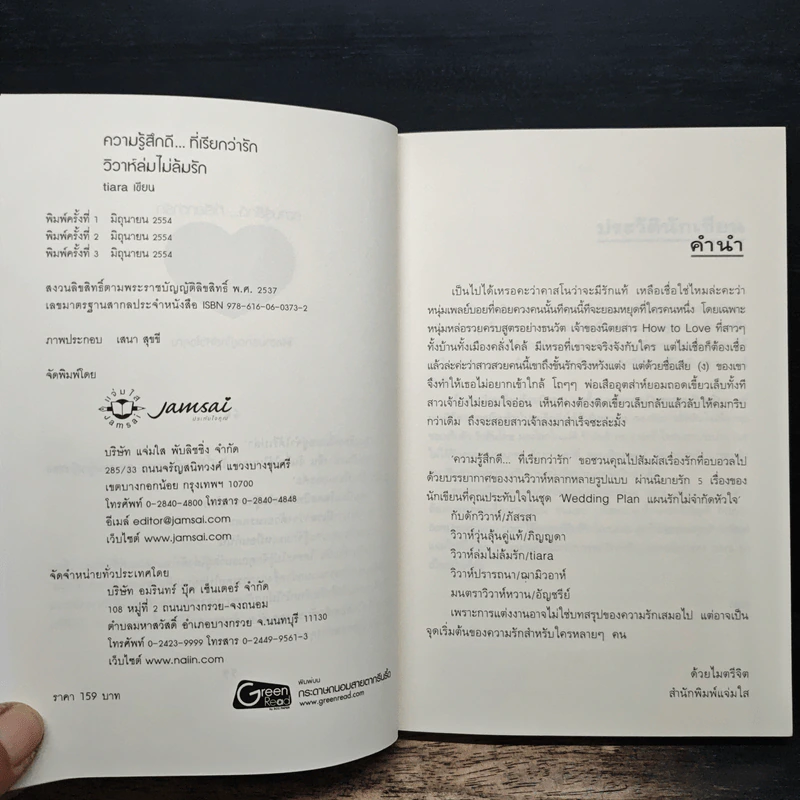 ความรู้สึกดี... ที่เรียกว่ารัก
วิวาห์ล่มไม่ล้มรัก
tiara เขียน
พิมพ์ครั้งที่ 1 มิถุนายน 2554
พิมพ์ครั้งที่ 2 มิถุนายน 2554
พิมพ์ครั้งที่ 3 มิถุนายน 2554
สงวนลิขสิทธิ์ตามพระราชบัญญัติลิขสิทธิ์ พ.ศ. 2537
เลขมาตรฐานสากลประจำหนังสือ ISBN 978-616-06-0373-2
ภาพประกอบ เสนา สุขขี
จัดพิมพ์โดย
แจ่มใส Jamsai
Jamsai
บริษัท แจ่มใส พับลิชชิ่ง จำกัด
285/33 ถนนจรัญสนิทวงศ์ แขวงบางขุนศรี
เขตบางกอกน้อย กรุงเทพฯ 10700
โทรศัพท์ 0-2840-4800 โทรสาร 0-2840-4848
อีเมล์ editor@jamsai.com
เว็บไซต์ www.jamsai.com
จัดจำหน่ายทั่วประเทศโดย
บริษัท อมรินทร์ บุ๊ค เซ็นเตอร์ จำกัด
108 หมู่ที่ 2 ถนนบางกรวย-จงถนอม
ตำบลมหาสวัสดิ์ อำเภอบางกรวย จ.นนทบุรี 11130
โทรศัพท์ 0-2423-9999 โทรสาร 0-2449-9561-3
เว็บไซต์ www.naiin.com
ราคา 159 บาท
Green Read
พิมพ์บน
กระดาษถนอมสายตากรีนรี้ด
www.greenread.com
คำนำ
เป็นไปได้เหรอคะว่าคาสโนว่าจะมีรักแท้ เหลือเชื่อใช่ไหมล่ะคะว่า
หนุ่มเพลย์บอยที่คอยควงคนนั้นทีคนนี้ทีจะยอมหยุดที่ใครคนหนึ่ง โดยเฉพาะ
หนุ่มหล่อรวยครบสูตรอย่างธนวัต เจ้าของนิตยสาร How to Love ที่สาวๆ
ทั้งบ้านทั้งเมืองคลั่งไคล้ มีเหรอที่เขาจะจริงจังกับใคร แต่ไม่เชื่อก็ต้องเชื่อ
แล้วล่ะค่ะว่าสาวสวยคนนี้เขาถึงขั้นรักจริงหวังแต่ง แต่ด้วยชื่อเสีย (ง) ของเขา
จึงทำให้เธอไม่อยากเข้าใกล้ โถๆๆ พ่อเสืออุตส่าห์ยอมถอดเขี้ยวเล็บทั้งที
สาวเจ้ายังไม่ยอมใจอ่อน เห็นทีคงต้องติดเขี้ยวเล็บกลับแล้วลับให้คมกริบ
กว่าเดิม ถึงจะสอยสาวเจ้าลงมาสำเร็จซะล่ะมั้ง
'ความรู้สึกดี... ที่เรียกว่ารัก' ขอชวนคุณไปสัมผัสเรื่องรักที่อบอวลไป
ด้วยบรรยากาศของงานวิวาห์หลากหลายรูปแบบ ผ่านนิยายรัก 5 เรื่องของ
นักเขียนที่คุณประทับใจในชุด 'Wedding Plan แผนรักไม่จำกัดหัวใจ'
กับดักวิวาห์/ภัสรสา
วิวาห์วุ่นลุ้นคู่แท้/ภิญญดา
วิวาห์ล่มไม่ล้มรัก/tiara
วิวาห์ปรารถนา/ฌามิวอาห์
มนตราวิวาห์หวาน/อัญชรีย์
เพราะการแต่งงานอาจไม่ใช่บทสรุปของความรักเสมอไป แต่อาจเป็น
จุดเริ่มต้นของความรักสำหรับใครหลายๆ คน
ด้วยไมตรีจิต
สำนักพิมพ์แจ่มใส